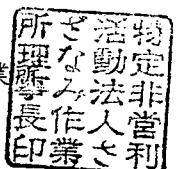 特定非営利
活動法人さ
ざなみ作業
所理事長印